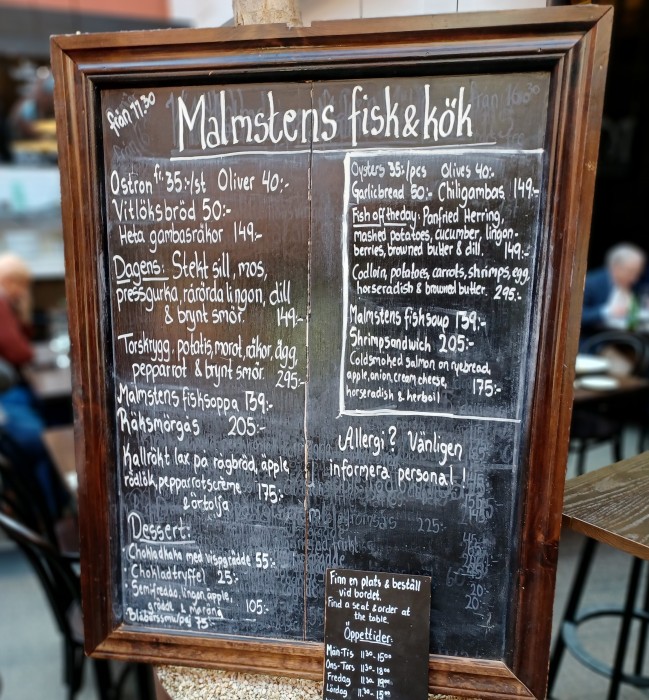 från 11.30
Malmstens fisk&kök
Ostron fr. 35:-/st Oliver 40:-
Vitlöksbröd 50:-
Heta gambasräkor 149:-
Dagens: Stekt sill, mos,
pressgurka, rårörda lingon, dill
& brynt smör. 149:-
Torskrygg, potatis, morot, räkor, ägg,
pepparrot & brynt smör. 295:-
Malmstens fisksoppa 139:-
Räksmörgås 205:-
Kallrökt lax på rågbröd, äpple,
rödlök, pepparrotscrème 175:-
& örtolja
Dessert:
Chokladkaka med vispgrädde 55:-
Chokladtryffel 25:-
Semifreddo, lingon, äpple,
grädde & maräng 105:-
75:-
Oysters 35:-/pcs Olives 40:-
Garlicbread 50:- Chiligambas 149:-
Fish of the day: Panfried Herring,
mashed potatoes, cucumber, lingon-
berries, browned butter & dill. 149:-
Codloin, potatoes, carrots, shrimps, egg,
horseradish & browned butter. 295:-
Malmstens fishsoup 139:-
Shrimpsandwich 205:-
Coldsmoked salmon on ryebread,
apple, onion, cream cheese, 175:-
horseradish & herboil
Allergi? Vänligen
informera personal!
225:-
Finn en plats & beställ
vid bordet.
Find a seat & order at
the table.
Öppettider:
Mån-Tis 11.30-16.00
Ons-Tors 11.30-18.00
Fredag 11.30-19.00
Lördag 11.30-15.00